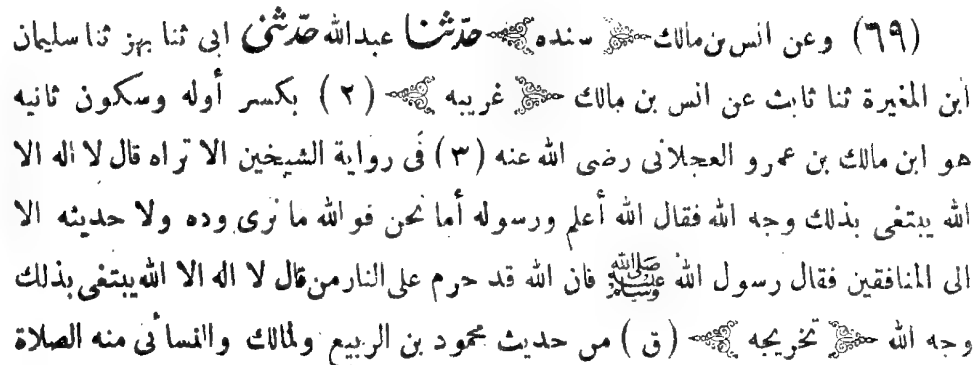 (٦٩) وعن انس بن مالك ﴿ سنده ﴾ حدّثنا عبدالله حدّثني ابى ثنا بهز ثنا سليمان
ابن المغيرة ثنا ثابت عن انس بن مالك ﴿ غريبه ﴾ (٢) بكسر أوله وسكون ثانيه
هو ابن مالك بن عمرو العجلانى رضى الله عنه (٣) فى رواية الشيخين الا تراه قال لا اله الا
الله يبتغى بذلك وجه الله فقال الله أعلم ورسوله أما نحن فوالله ما نرى وده ولا حديثه الا
الى المنافقين فقال رسول الله ﷺ فان الله قد حرم على النار من قال لا اله الا الله يبتغى بذلك
وجه الله ﴿ تخريجه ﴾ (ق) من حديث محمود بن الربيع ولمالك والنسائى منه الصلاة